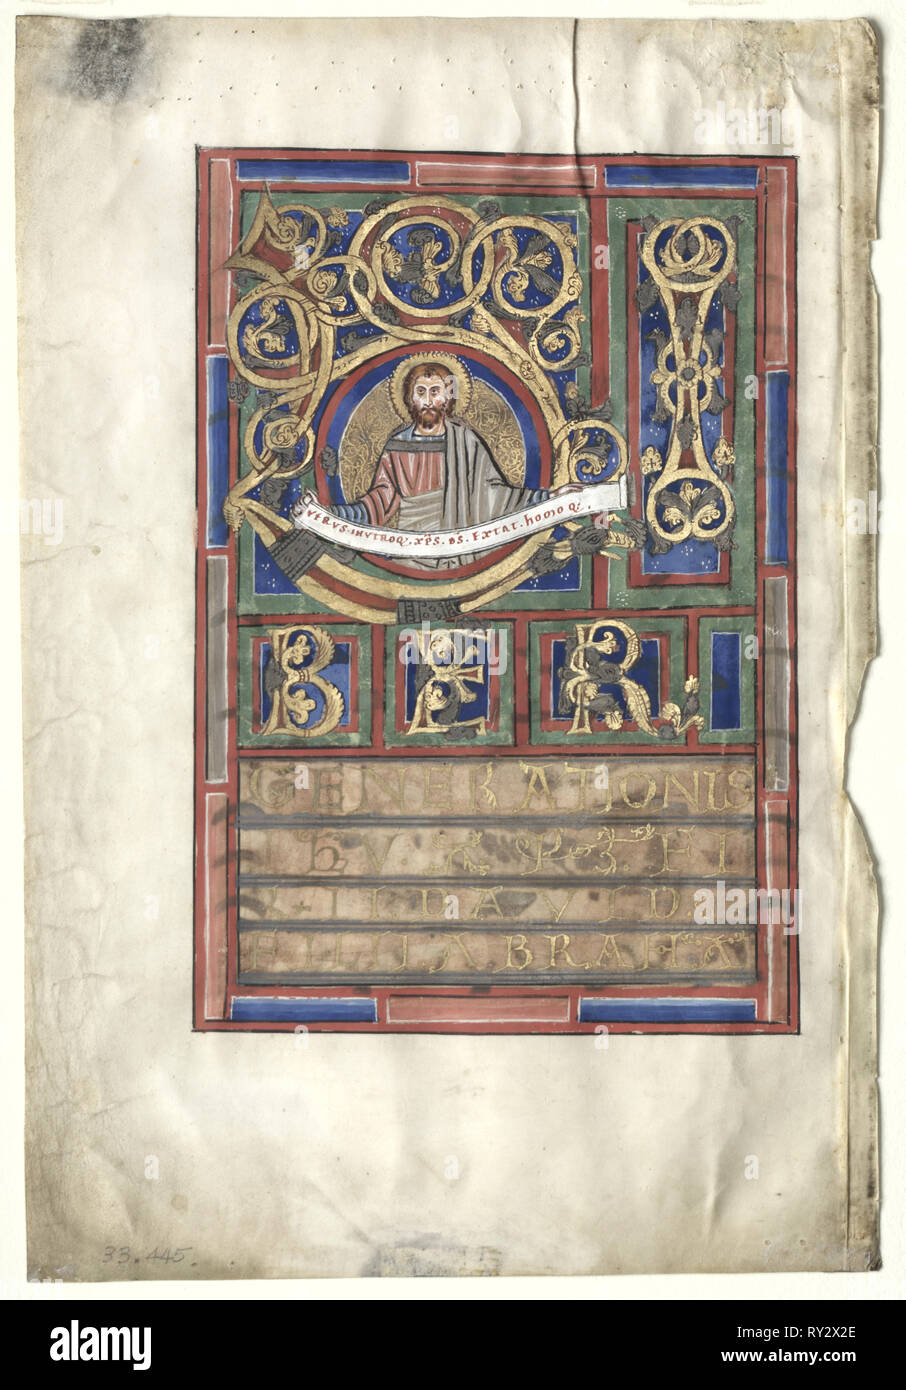 VERVS. IN VTROQ. XPS. DS. EXTAT. homo Q;.
L I
BER
GENERATIONIS
IhV XPI FI
LII DAVID
FILII ABRAHA
33.445
alamy
Image ID: RY2X2E
www.alamy.com